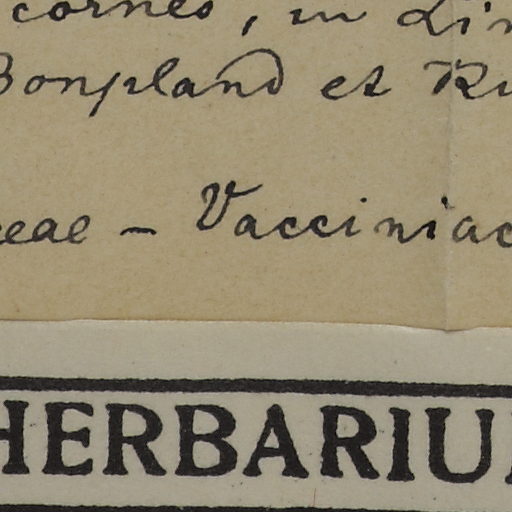 cornes, in Lin
Bonpland et Ku
ceae - Vacciniac
HERBARIU